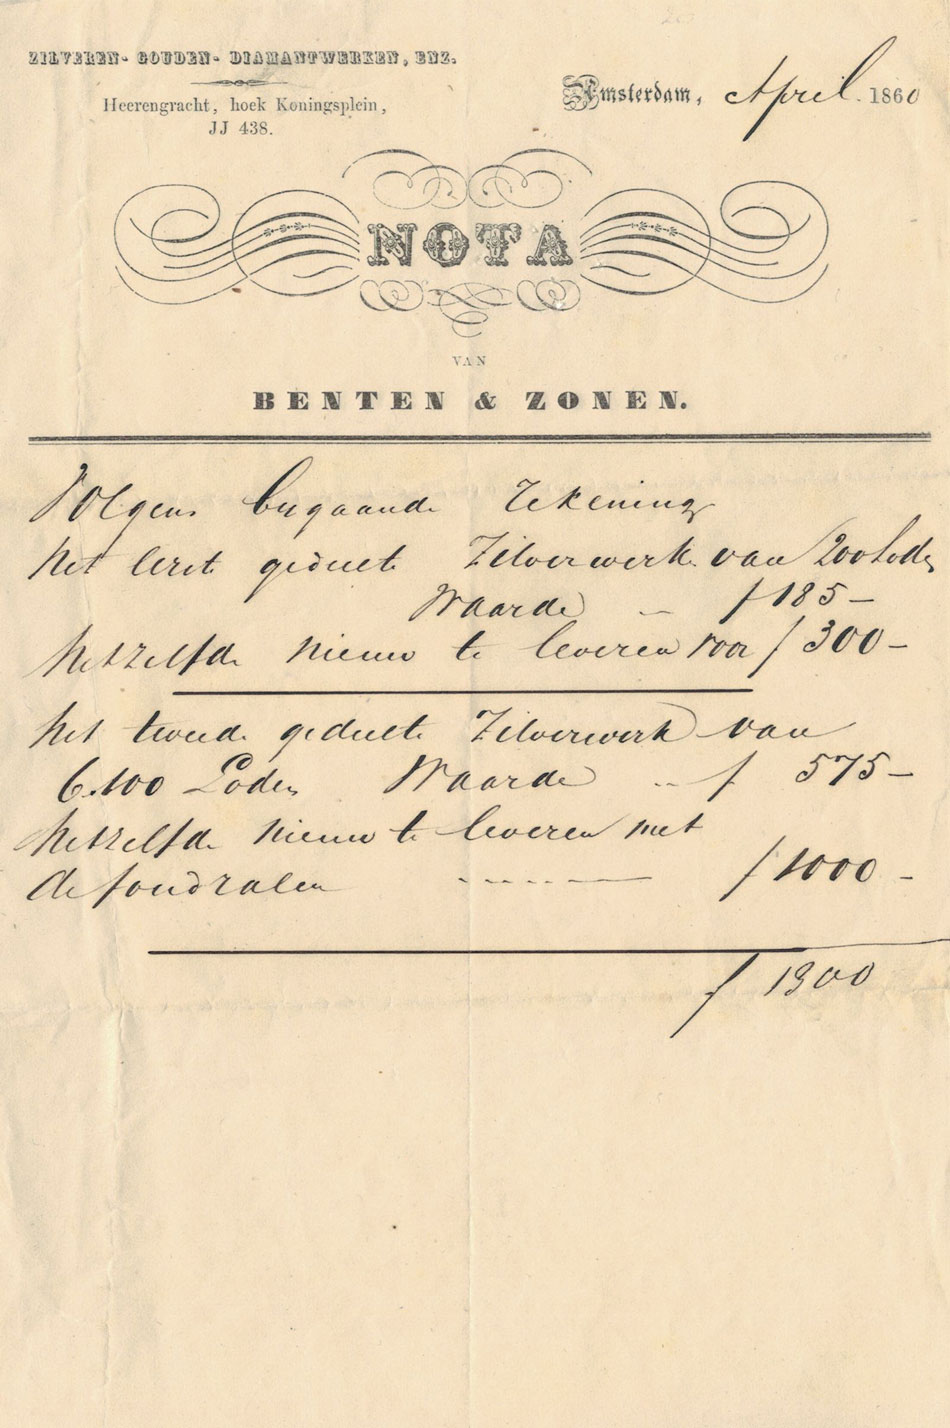 ZILVEREN- GOUDEN- DIAMANTWERKEN, ENZ.
Heerengracht, hoek Koningsplein,
JJ 438.
Amsterdam, April 1860
NOTA
VAN
BENTEN & ZONEN.
Volgens bygaande Tekening
het Eerste gedeelte Zilverwerk van 200 Loden
Waarde f 185-
hetzelfde nieuw te leveren voor f 300-
het tweede gedeelte Zilverwerk van
6.100 Loden Waarde f 575-
hetzelfde nieuw te leveren met
de foudralen f 1000-
f 1300